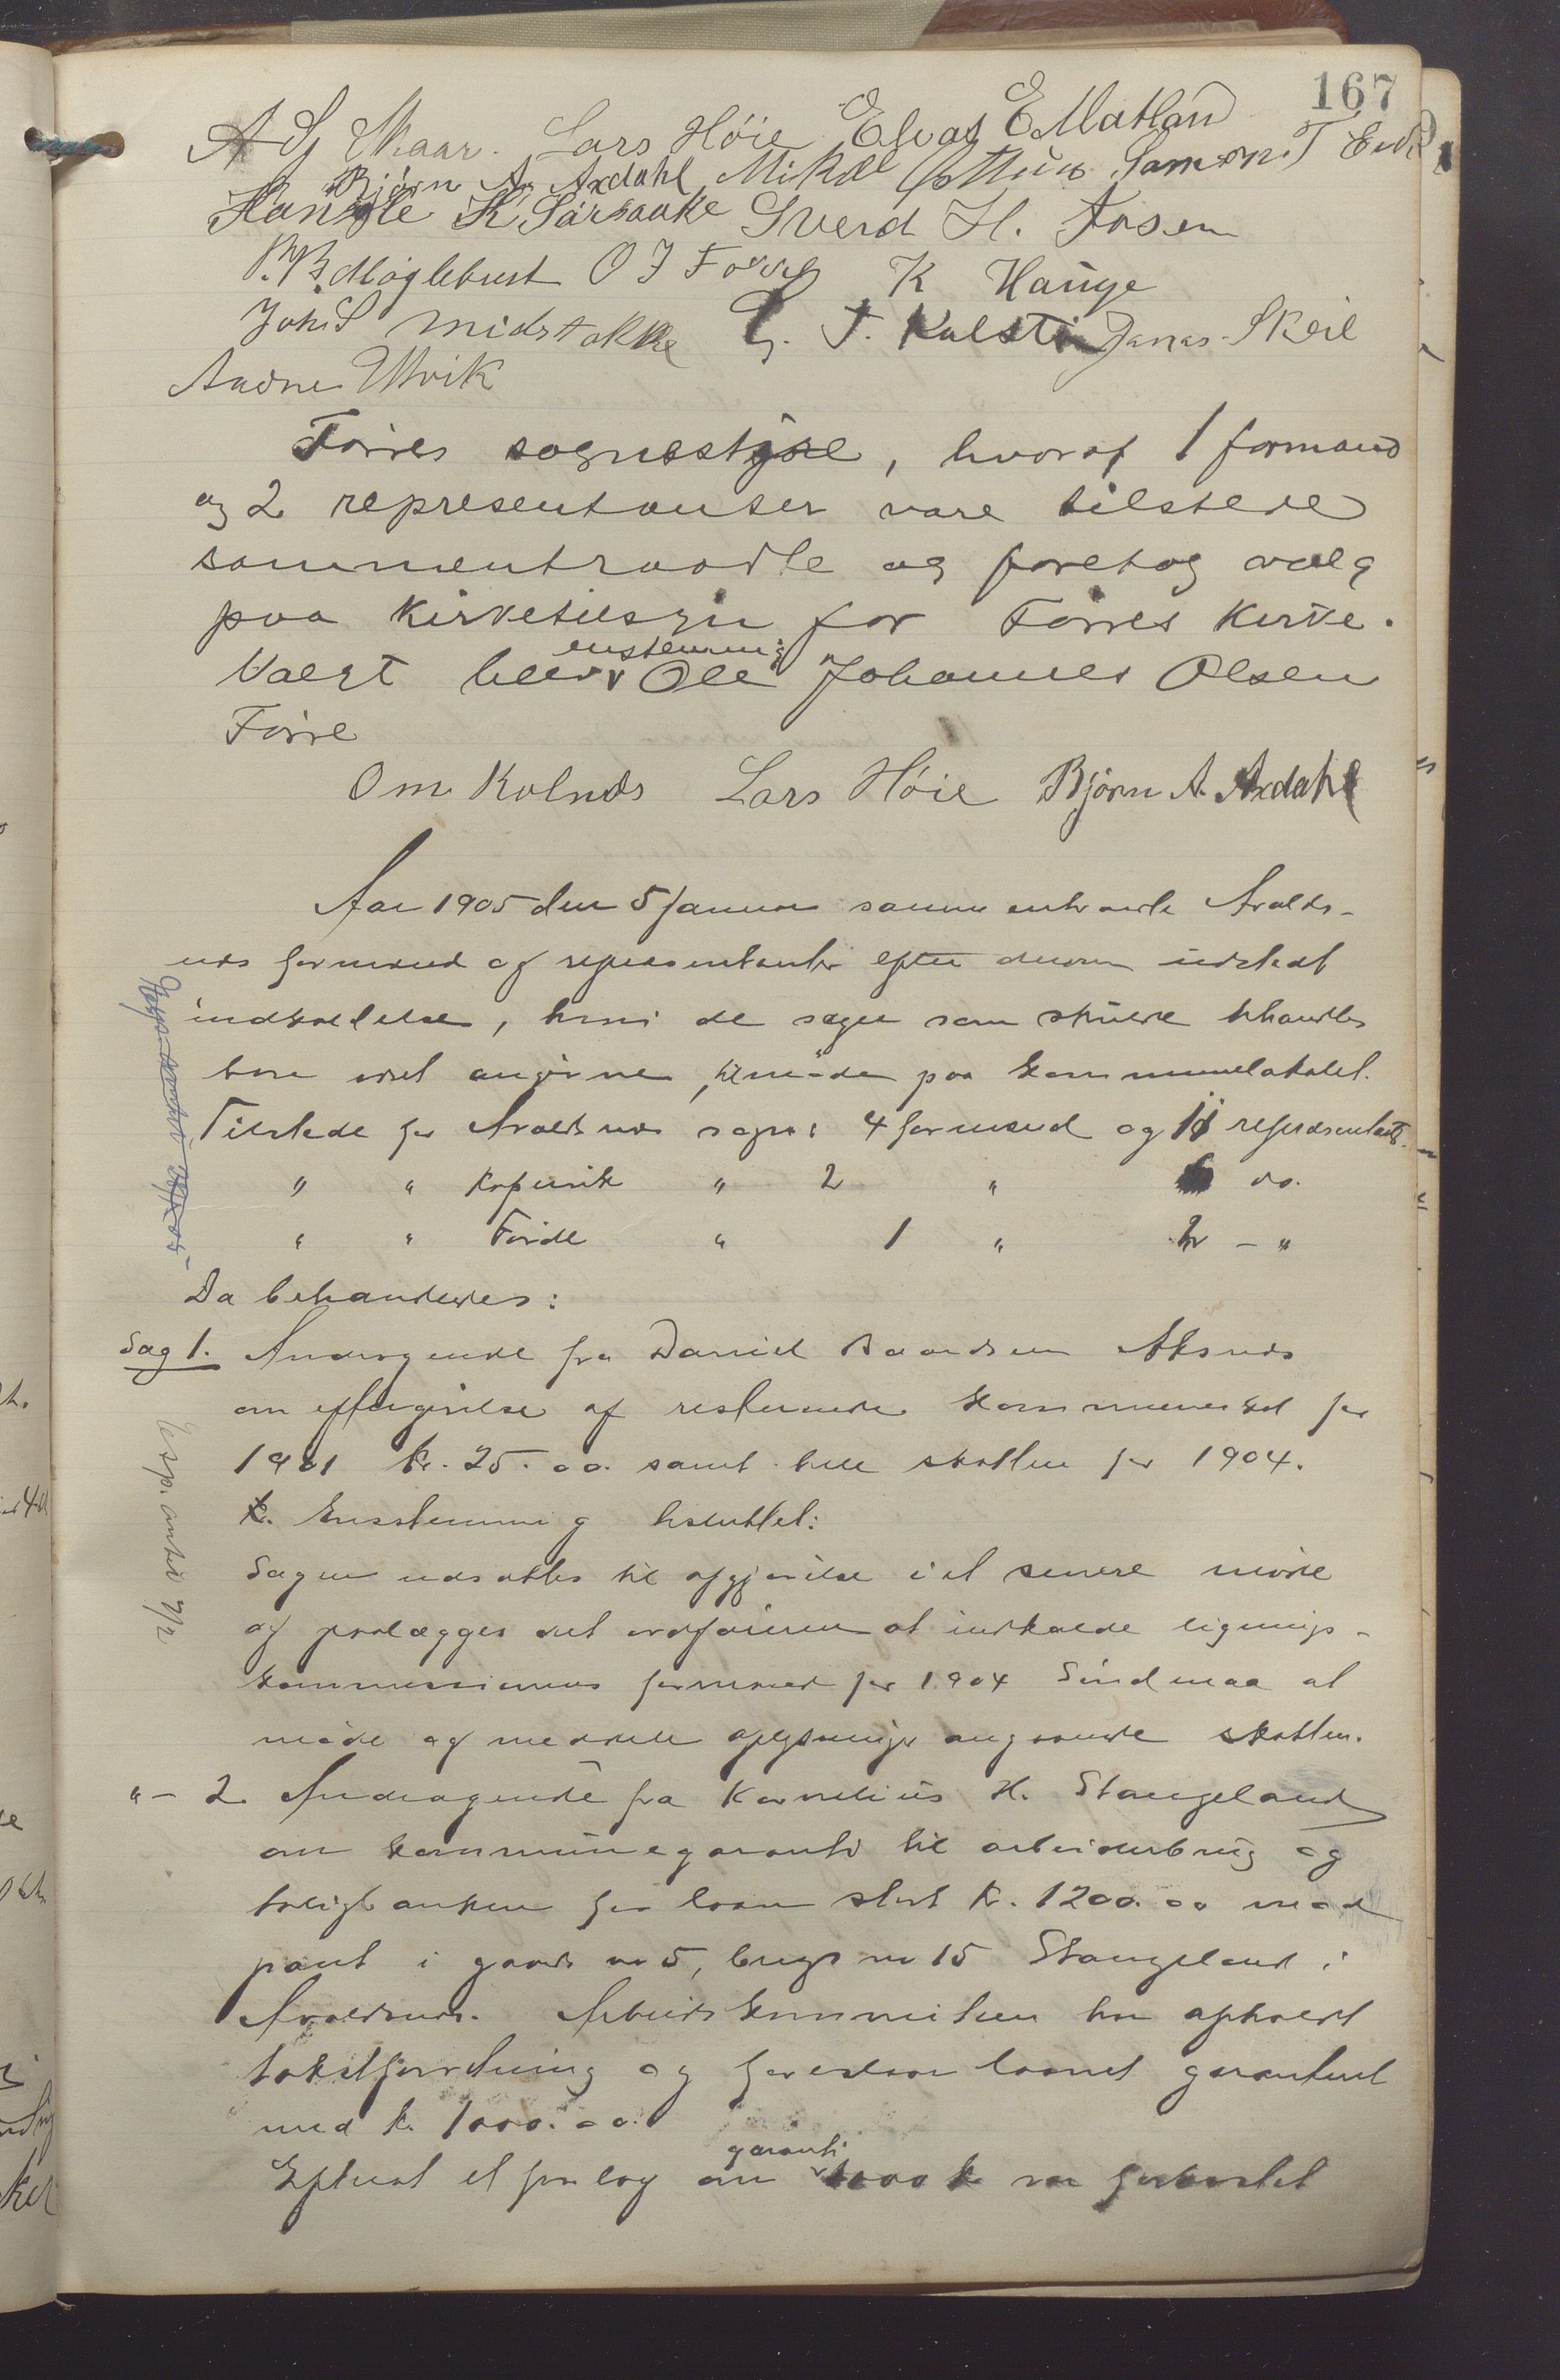 167
A S Skaar. Lars Höie Elias E Matland
Bjørn A. Axdahl Mikal Simon T Eide
K Sørsaake Sverd H. Fosen
P. B. Møglebust O J Førre K Hauge
Joh S Midstokke G. T. Kolstø Jonas Skeie
Aadne Utvik
Förres sognestyre, hvoraf 1 formand
og 2 representanter vare tilstede
sammentraadte og foretog valg
paa Kirketilsyn for Förres Kirke.
enstemmig
Valgt blev v Ole Johannes Olsen
Förre
O M Kolnes Lars Höie Bjørn A. Axdahl
Aar 1905 den 5 Januar sammentraadte Avalds-
nes formænd og repræsentanter efter derom udstedt
indkaldelse, hvori de sager som skulde behandles
vare angivne, til möde paa kommunelokalet.
Tilstede for Avaldsnes sogn: 4 formænd og 11 repræsentant.
" " Kopervik " 2 " 6 do.
" " Förde " 1 " 2 - "
Da behandledes:
Sag 1. Andragende fra Daniel Baardsen Aksnes
om eftergivelse af resterende kommuneskat for
1901 kr. 25.00 samt hele skatten for 1904.
Enstemmig besluttet:
Sagen udsættes til afgjørelse i et senere möde
og paalægges det ordföreren at indkalde lignings-
kommissionens formand for 1904 Sundmaa at
möde og meddele oplysninger angaaende skatten.
Eksp. 7/2
"- 2. Andragende fra Kornelius H. Stangeland
om kommunegaranti til arbeiderbrug og
boligbanken for laan stort kr. 1200.00 mod
pant i gaards no 5, brugs no 15 Stangeland i
Avaldsnes. Arbeidskommiteen har afholdt
takstforretning og foreslaar laanet garanteret
med kr. 1000.00.
garanti
Efterat et forslag om v 1000 kr var forkastet